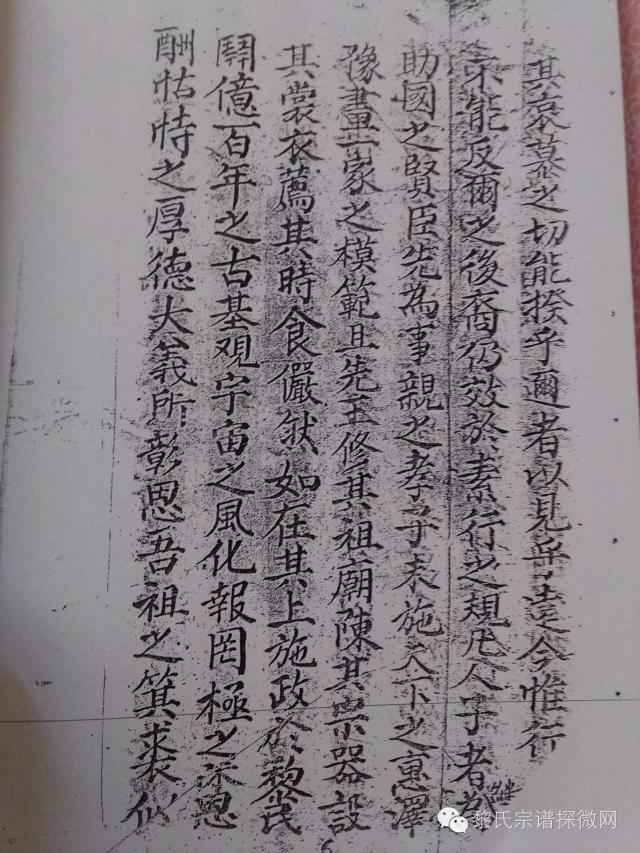 其哀慕之切能揆乎邇者以見乎遠今惟行
能反爾之後裔仍效於素行之規凡人子者
助國之賢臣先為事親之孝子未施天下之惠澤
豫畫一家之模範且先王修其祖廟陳其宗器設
其裳衣薦其時食儼然如在其上施政於黎民
開億百年之古基观宇宙之風化報罔極之深恩
酬怙恃之厚德大義所彰恩吾祖之箕裘似
黎氏宗谱探微网